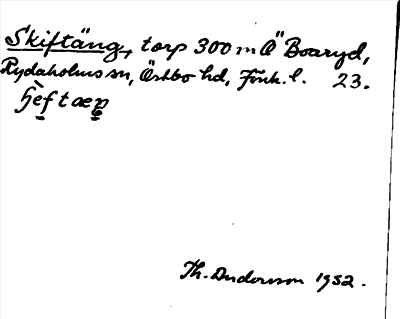 Skiftäng, torp 300 m Ö Boaryd,
Rydaholms sn, Östbo hd, Jönk. l. 23.
Th. Andersson 1952.